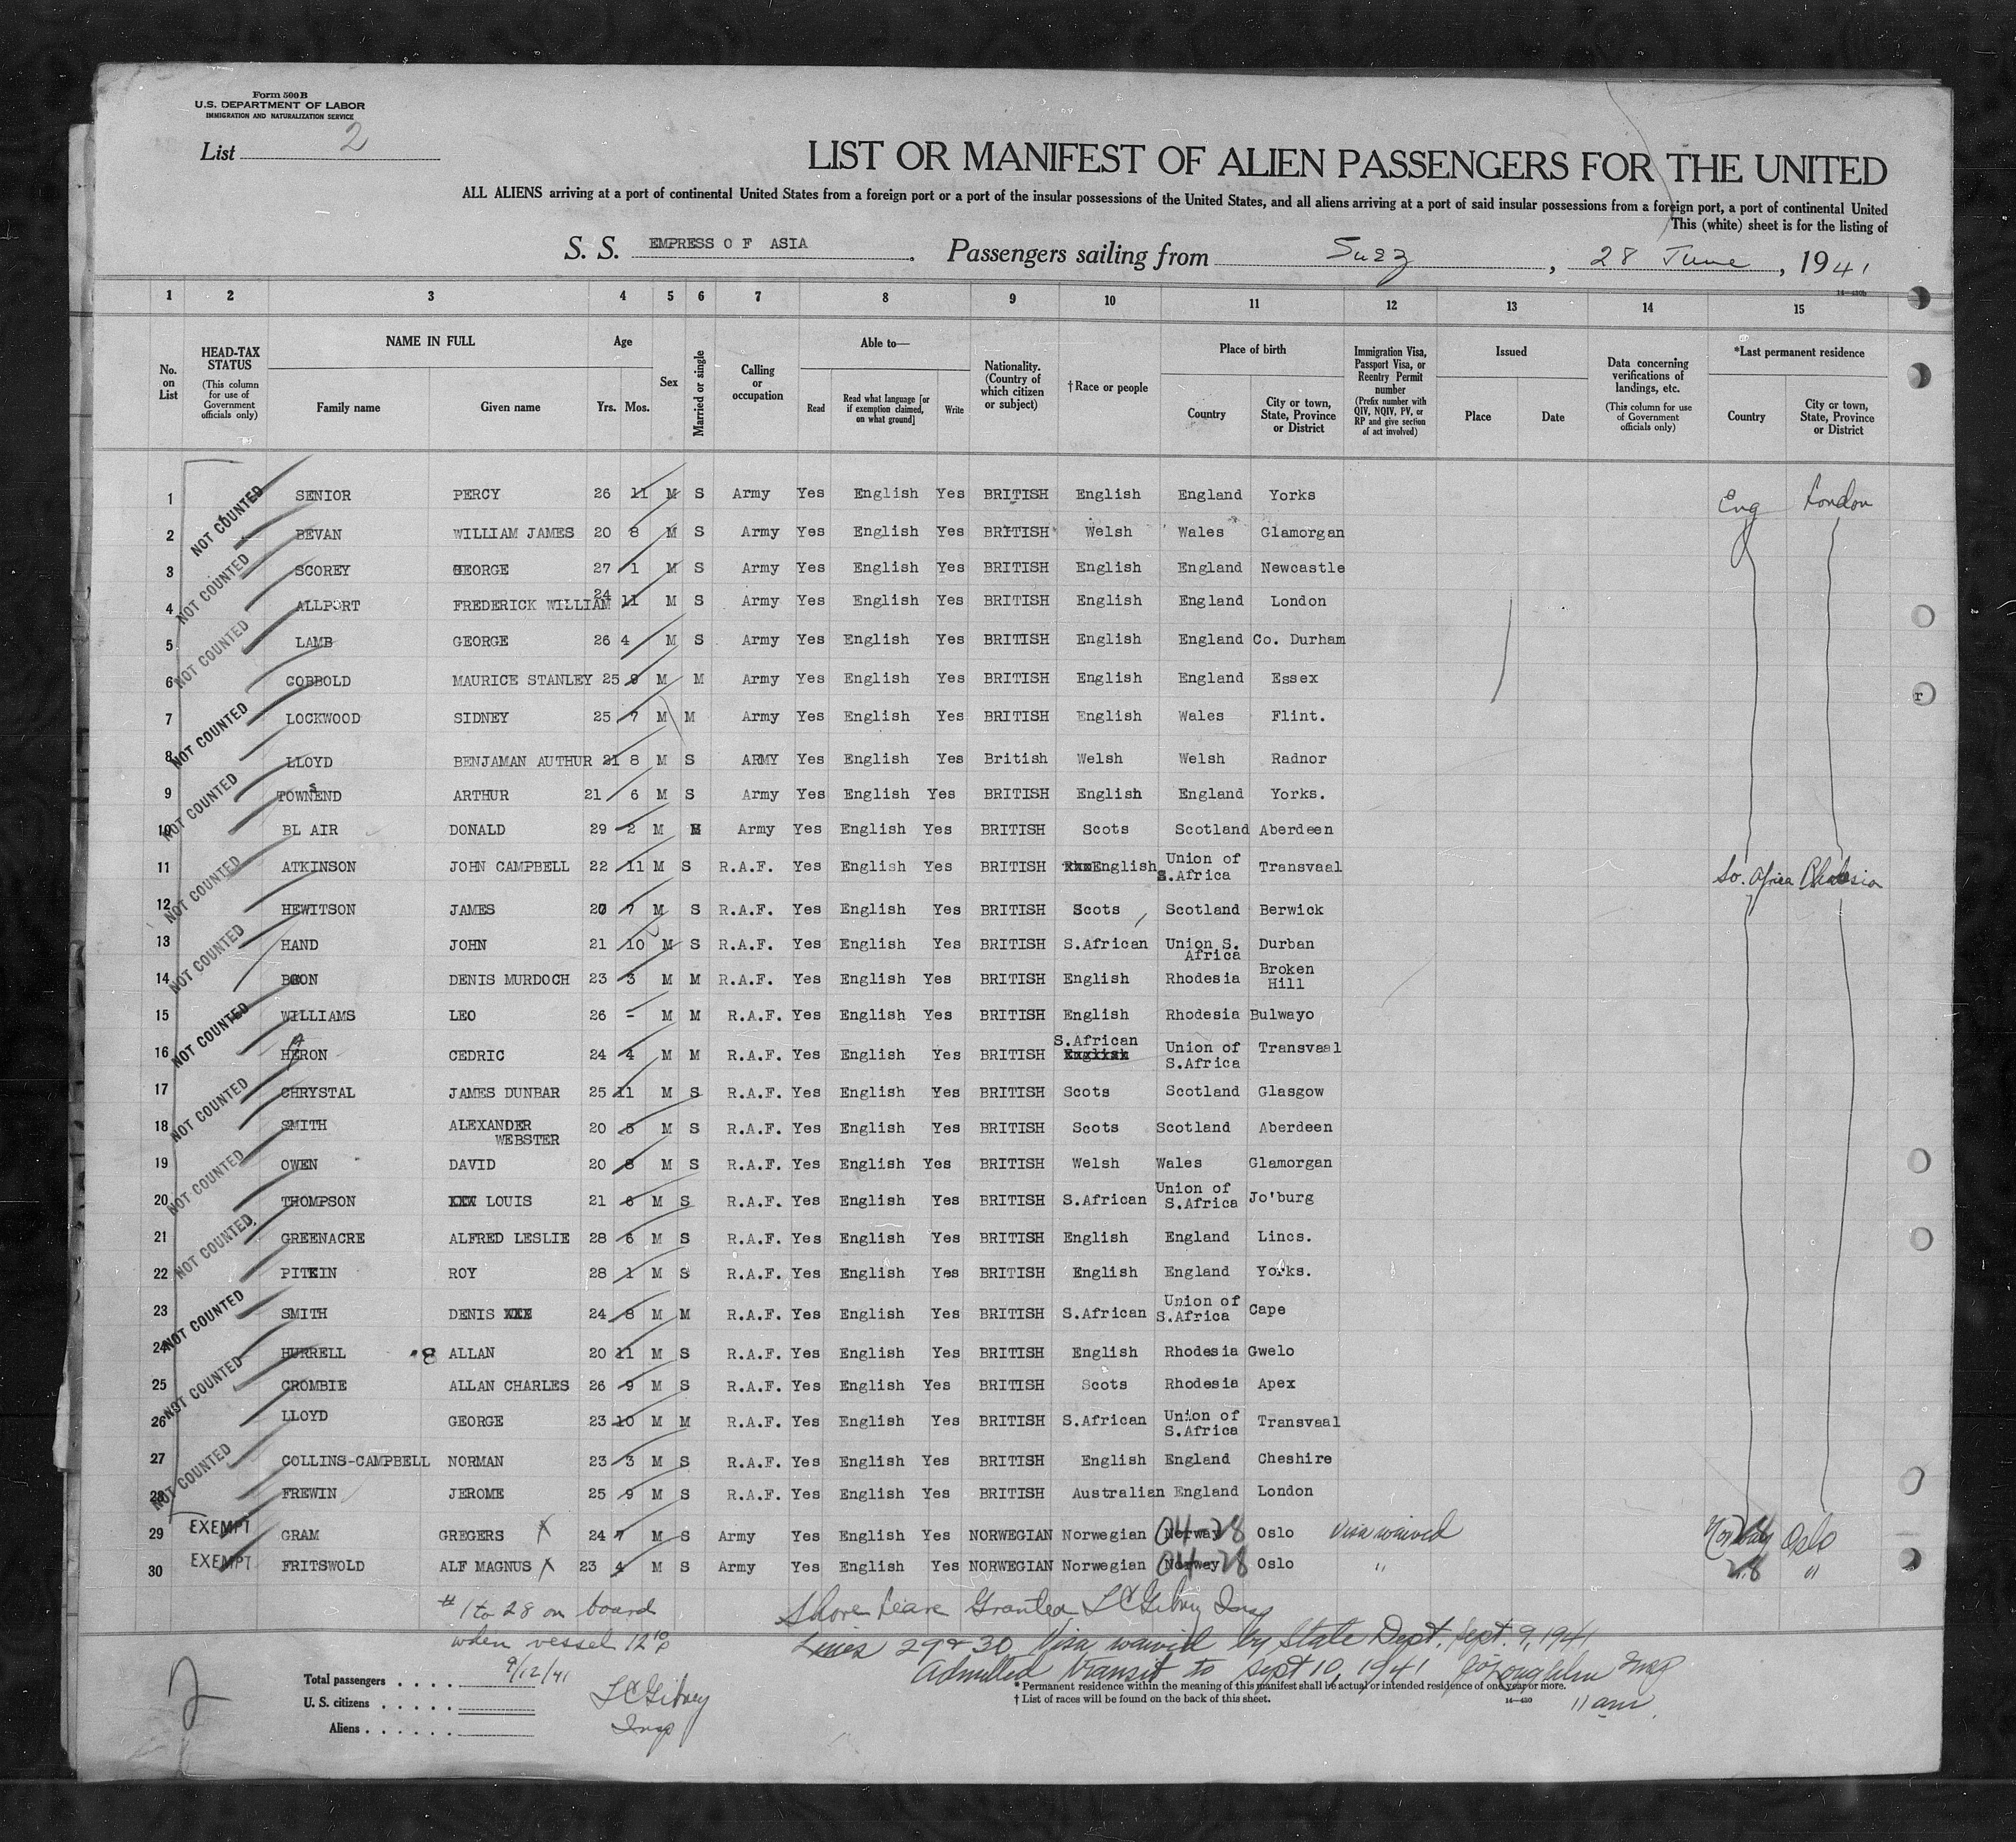 Form 500 B
U.S. DEPARTMENT OF LABOR
IMMIGRATION AND NATURALIZATION SERVICE
List 2
LIST OR MANIFEST OF ALIEN PASSENGERS FOR THE UNITED
ALL ALIENS arriving at a port of continental United States from a foreign port or a port of the insular possessions of the United States, and all aliens arriving at a port of said insular possessions from a foreign port, a port of continental United
This (white) sheet is for the listing of
S. S. EMPRESS O F ASIA . Passengers sailing from Suez , 28 June , 1941
1 2 3 4 5 6 7 8 9 10 11 12 13 14 15
No. on List
HEAD-TAX STATUS (This column for use of Government officials only)
NAME IN FULL
Family name Given name
Age
Yrs. Mos.
Sex
Married or single
Calling or occupation
Able to—
Read
Read what language [or if exemption claimed, on what ground]
Write
Nationality. (Country of which citizen or subject)
† Race or people
Place of birth
Country
City or town, State, Province or District
Immigration Visa, Passport Visa, or Reentry Permit number (Prefix number with QIV, NQIV, PV, or RP and give section of act involved)
Issued
Place Date
Data concerning verifications of landings, etc. (This column for use of Government officials only)
*Last permanent residence
Country
City or town, State, Province or District
1 NOT COUNTED SENIOR PERCY 26 11 M S Army Yes English Yes BRITISH English England Yorks Eng London
2 BEVAN WILLIAM JAMES 20 8 M S Army Yes English Yes BRITISH Welsh Wales Glamorgan
3 NOT COUNTED SCOREY GEORGE 27 1 M S Army Yes English Yes BRITISH English England Newcastle
4 ALLPORT FREDERICK WILLIAM 24 11 M S Army Yes English Yes BRITISH English England London
5 NOT COUNTED LAMB GEORGE 26 4 M S Army Yes English Yes BRITISH English England Co. Durham
6 COBBOLD MAURICE STANLEY 25 9 M M Army Yes English Yes BRITISH English England Essex
7 NOT COUNTED LOCKWOOD SIDNEY 25 7 M M Army Yes English Yes BRITISH English Wales Flint.
8 LLOYD BENJAMAN AUTHUR 21 8 M S ARMY Yes English Yes British Welsh Welsh Radnor
9 NOT COUNTED TOWNSEND ARTHUR 21 6 M S Army Yes English Yes BRITISH English England Yorks.
10 BL AIR DONALD 29 2 M M Army Yes English Yes BRITISH Scots Scotland Aberdeen
11 NOT COUNTED ATKINSON JOHN CAMPBELL 22 11 M S R.A.F. Yes English Yes BRITISH English Union of S.Africa Transvaal So. Africa Rhodesia
12 HEWITSON JAMES 20 7 M S R.A.F. Yes English Yes BRITISH Scots Scotland Berwick
13 NOT COUNTED HAND JOHN 21 10 M S R.A.F. Yes English Yes BRITISH S.African Union S. Africa Durban
14 BOON DENIS MURDOCH 23 3 M M R.A.F. Yes English Yes BRITISH English Rhodesia Broken Hill
15 NOT COUNTED WILLIAMS LEO 26 - M M R.A.F. Yes English Yes BRITISH English Rhodesia Bulwayo
16 HERON CEDRIC 24 4 M M R.A.F. Yes English Yes BRITISH S.African English Union of S.Africa Transvaal
17 NOT COUNTED CHRYSTAL JAMES DUNBAR 25 11 M S R.A.F. Yes English Yes BRITISH Scots Scotland Glasgow
18 SMITH ALEXANDER WEBSTER 20 5 M S R.A.F. Yes English Yes BRITISH Scots Scotland Aberdeen
19 NOT COUNTED OWEN DAVID 20 8 M S R.A.F. Yes English Yes BRITISH Welsh Wales Glamorgan
20 THOMPSON XXX LOUIS 21 6 M S R.A.F. Yes English Yes BRITISH S.African Union of S.Africa Jo'burg
21 NOT COUNTED GREENACRE ALFRED LESLIE 28 6 M S R.A.F. Yes English Yes BRITISH English England Lincs.
22 PITKIN ROY 28 1 M S R.A.F. Yes English Yes BRITISH English England Yorks.
23 NOT COUNTED SMITH DENIS XXX 24 8 M M R.A.F. Yes English Yes BRITISH S.African Union of S.Africa Cape
24 HURRELL 8 ALLAN 20 11 M S R.A.F. Yes English Yes BRITISH English Rhodesia Gwelo
25 NOT COUNTED CROMBIE ALLAN CHARLES 26 9 M S R.A.F. Yes English Yes BRITISH Scots Rhodesia Apex
26 LLOYD GEORGE 23 10 M M R.A.F. Yes English Yes BRITISH S.African Union of S.Africa Transvaal
27 NOT COUNTED COLLINS-CAMPBELL NORMAN 23 3 M S R.A.F. Yes English Yes BRITISH English England Cheshire
28 FREWIN JEROME 25 9 M S R.A.F. Yes English Yes BRITISH Australian England London
29 EXEMPT GRAM GREGERS X 24 7 M S Army Yes English Yes NORWEGIAN Norwegian Norway 04 28 Oslo Visa waived Norway 28 Oslo
30 EXEMPT FRITSWOLD ALF MAGNUS X 23 4 M S Army Yes English Yes NORWEGIAN Norwegian Norway 04 28 Oslo " 28 "
# 1 to 28 on board
when vessel 12 10 p
9/12/41
Shore Leave Granted L C Gibney Insp
Lines 29 & 30 Visa waived by State Dept. Sept. 9, 1941
Admitted transit to Sept 10, 1941 Insp
11 am.
2
Total passengers . . . .
U. S. citizens . . . . .
Aliens . . . . . .
L C Gibney
Insp
* Permanent residence within the meaning of this manifest shall be actual or intended residence of one year or more.
† List of races will be found on the back of this sheet.
14—430